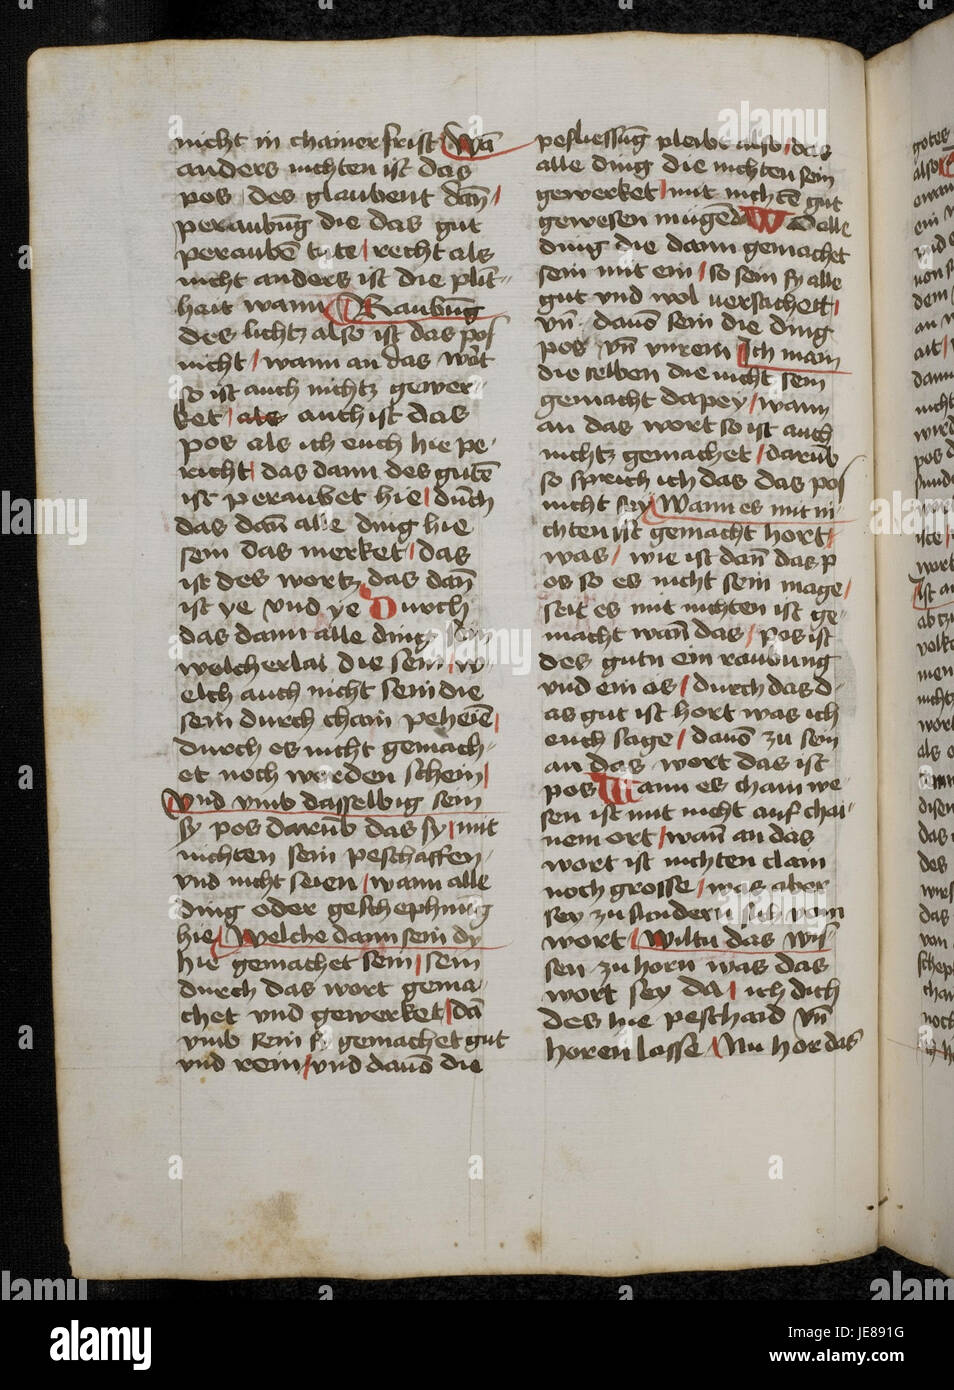 nicht in chainer frist Wañ
anders nichten ist das
pos des glaubent dañ
peraubūg die das gut
peraubē tūte recht als
nicht anders ist die plīt
hait wann Raubūg
des lichtz also ist das pos
nicht wann an das wort
so ist auch nichtz gewer
ket als auch ist das
pos als ich euch hie pe
richt das dann des gutē
ist peraubet hie durch
das dañ alle ding hie
sein das merket das
ist des wortz das dañ
ist ye vnd ye Durch
das dann alle ding sein
welcherlai die sein w
elch auch nicht sein die
sein durch chain
durch es nicht gemach
et noch werden schein
Vnd vmb dasselbig sein
sy pos darūb das sy mit
nichten sein peschaffen
vnd nicht seien wann alle
ding oder geschephnūg
hie Welche dann sein dy
hie gemachet sein sein
durch das wort gema
chet vnd gewerket dañ
vmb sein sy gemachet gut
vnd rein vnd dauō die
pefliessūg pleibe also das
alle ding die nichten sein
gewerket mit nichtē gut
gewesen mugē W alle
ding die dann gemachet
sein mit ein so sein sy alle
gut vnd wol versachett
vñ dauō sein die ding
pos vñ vnrein Ich main
die selben die nicht sein
gemacht dapey wann
an das wort so ist auch
nichtz gemachet darūb
so sprich ich das das pos
nicht sey Wann es mit ni
chten ist gemacht hort
was wie ist dañ das p
os so es nicht sein mage
seit es mit nichten ist ge
macht wañ das pos ist
des gutn ein raubung
vnd ein as durch das d
as gut ist hort was ich
euch sage dauō zu sein
an das wort das ist
pos Wann es chain we
sen ist mit nicht auf chai
nem ort wañ an das
wort ist nichten clain
noch grosse was aber
sey zu sundern sich vom
wort Wiltu das wis
sen zu horn was das
wort sey da ich dich
des hie peschaid vñ
horen lasse Nu hor das
alamy
JE891G
www.alamy.com